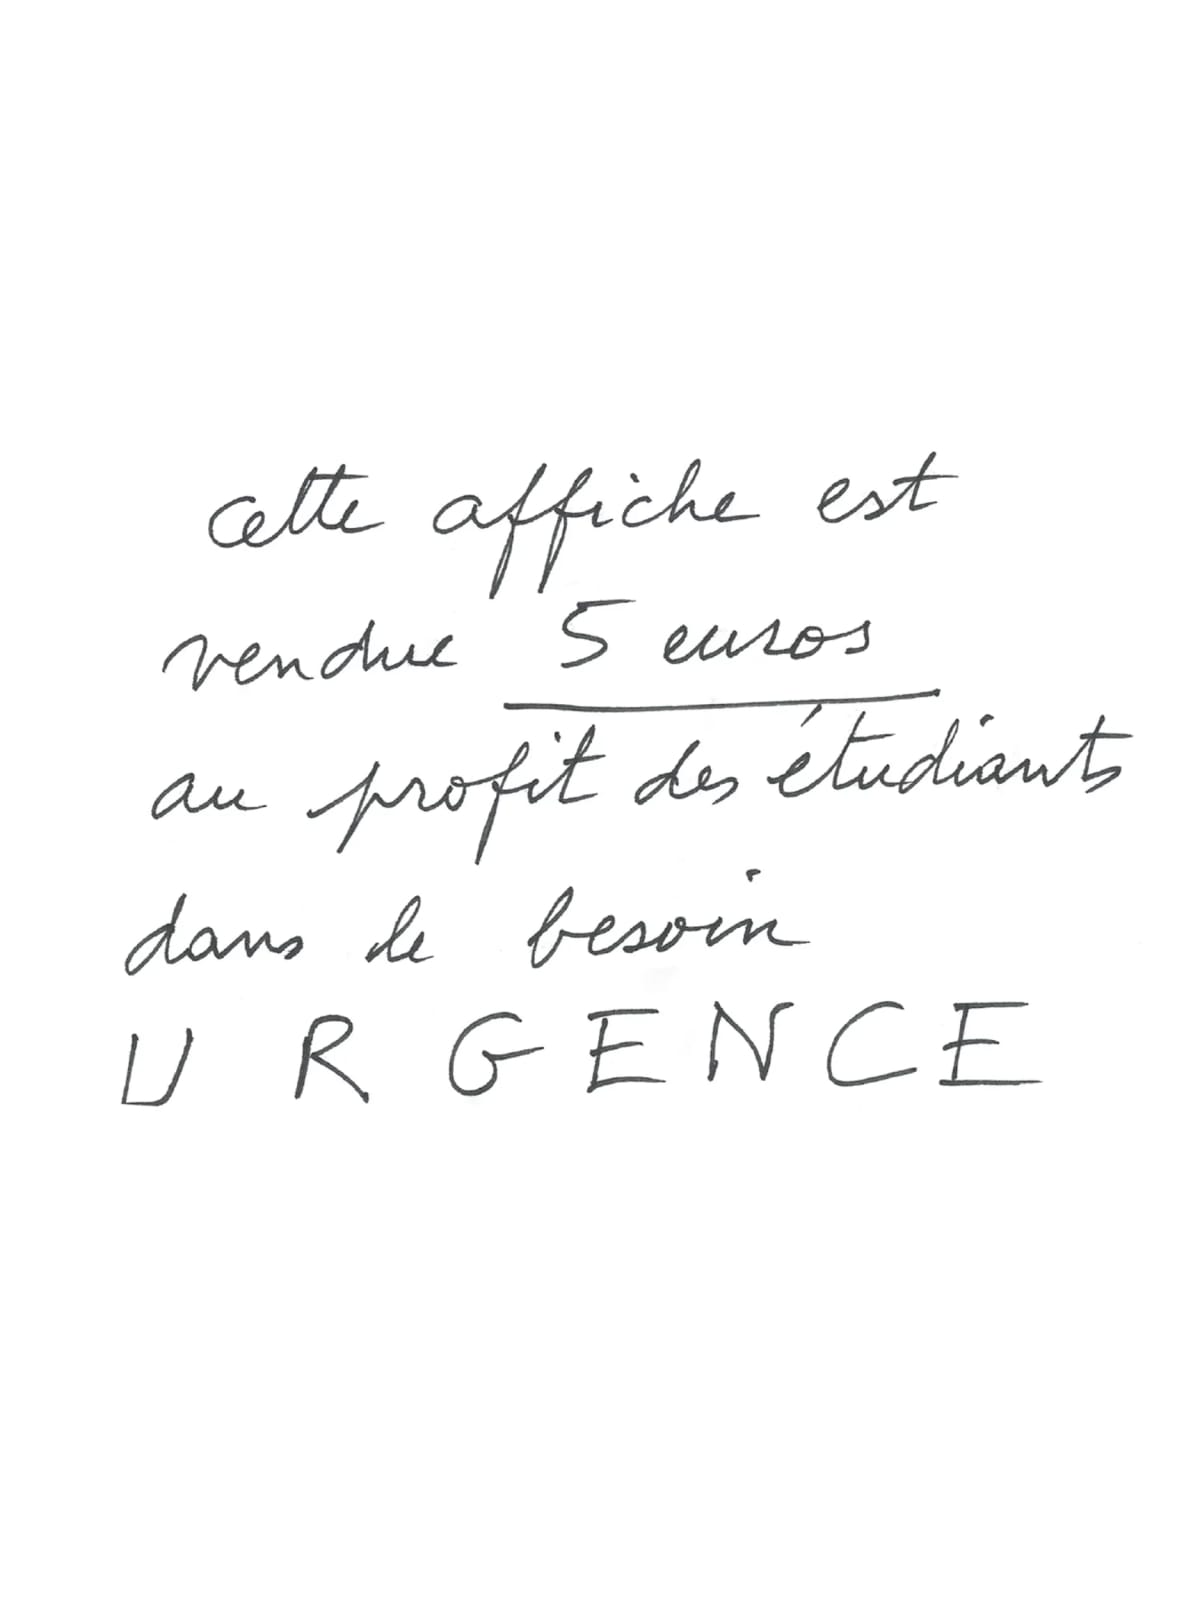 cette affiche est
vendue 5 euros
au profit des étudiants
dans le besoin
URGENCE